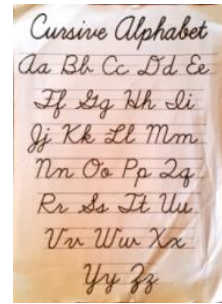 Cursive Alphabet
Aa Bb Cc Dd Ee
Ff Gg Hh Ii
Jj Kk Ll Mm
Nn Oo Pp Qq
Rr Ss Tt Uu
Vv Ww Xx
Yy Zz